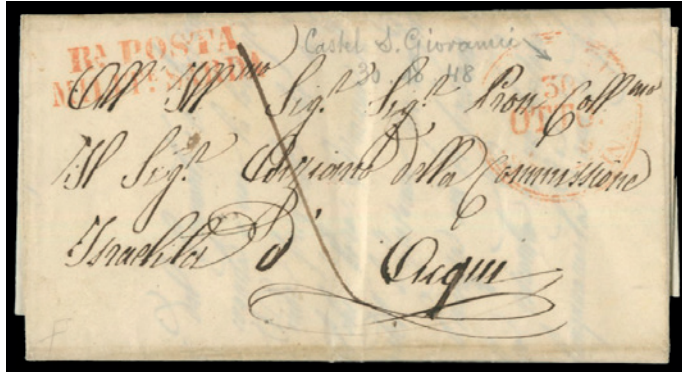 Rª POSTA
MILITE SARDA
Castel S. Giovanni
30 10 48
30
OTTO.
All' Ill.mo Sig.r Sig.r Pron Coll.mo
Il Sig.r Anziano della Commissione
Israelita d'
Acqui
F